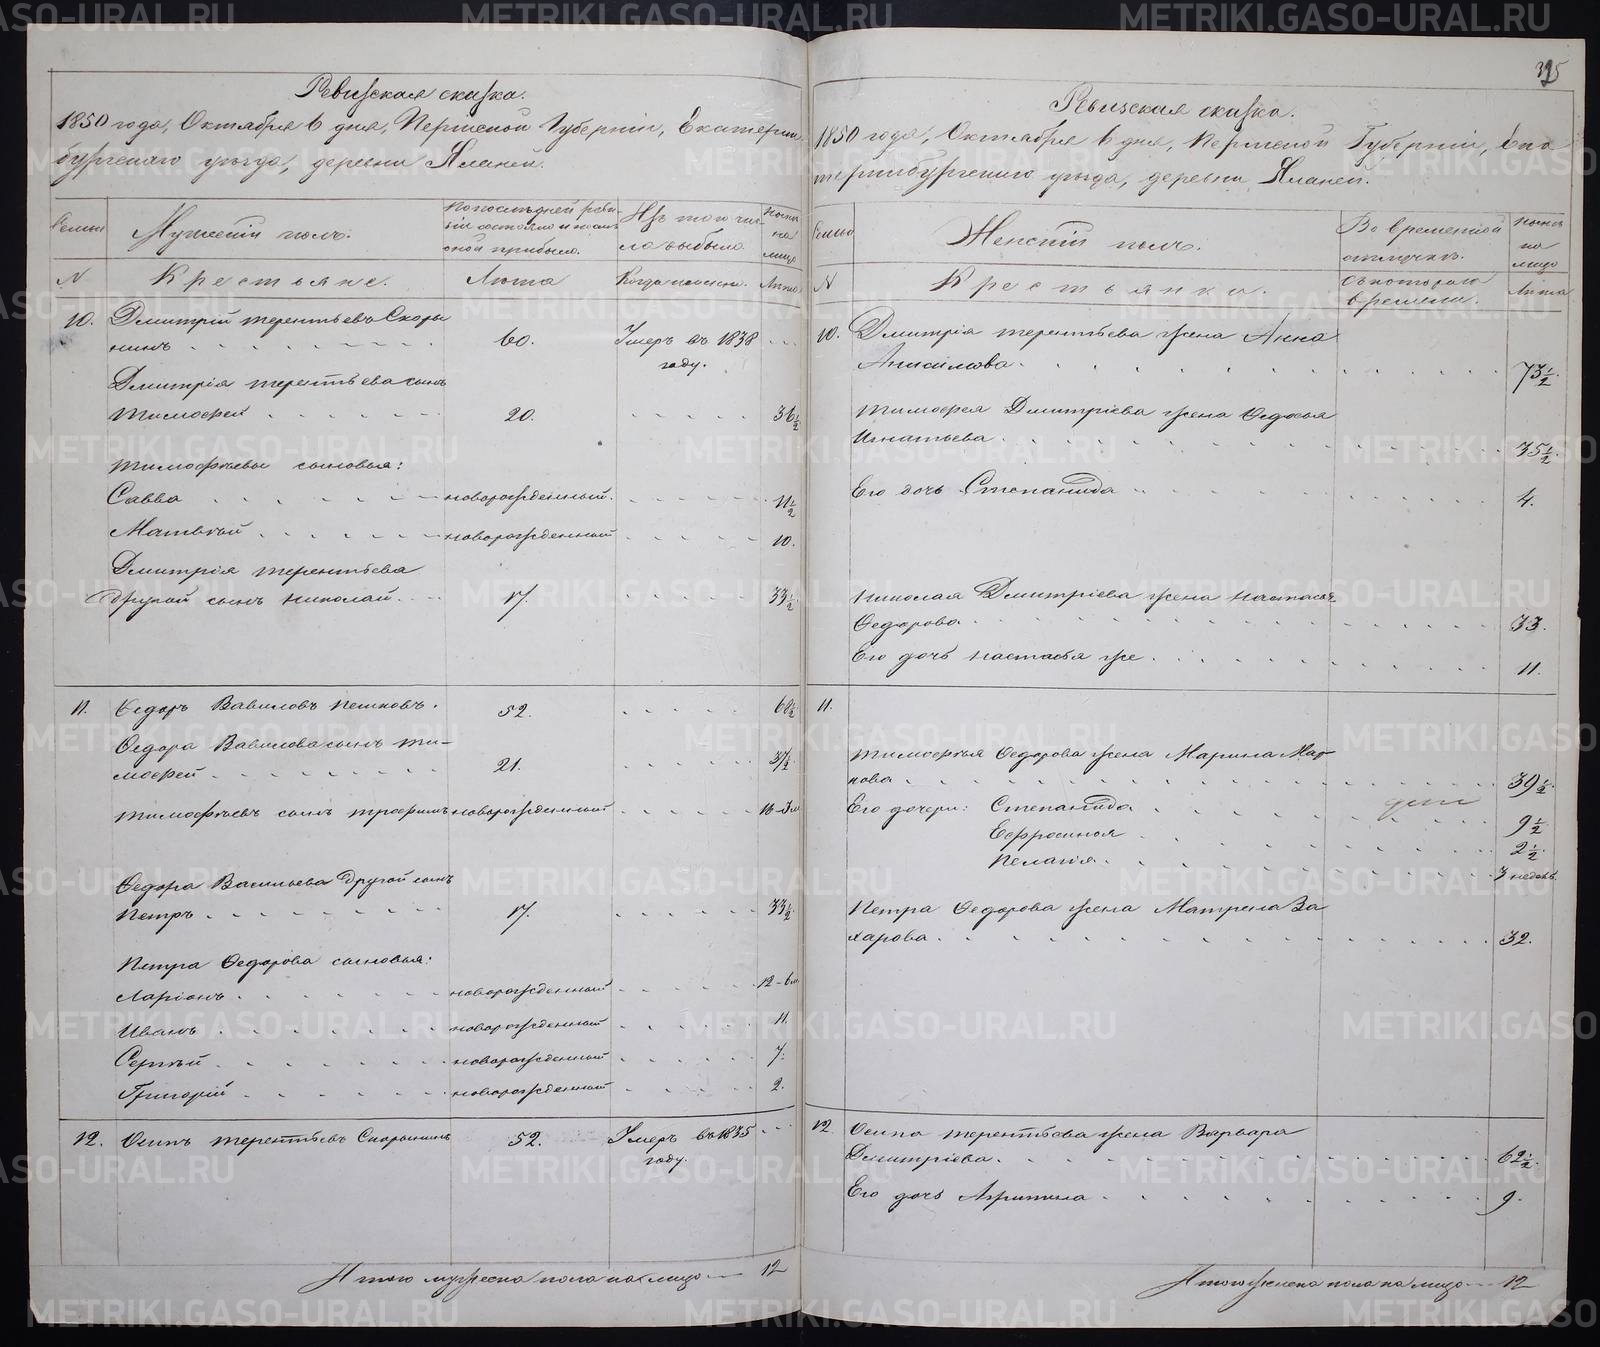 Ревизская сказка.
1850 года, Октября 6 дня, Пермской Губернiи, Екатерин-
бургскаго уѣзда, деревни Аланей.
Семьи
Мужескiй полъ.
По последней реви-
зiи состояло и после
оной прибыло.
Изъ того чис-
ла выбыло.
Ныне
на
лицо
N
Крестьяне.
Лѣта
Когда именно.
Лѣта
10. Дмитрiй Терентьевъ Скоры-
нинъ 60. Умеръ въ 1838
году.
Дмитрiя Терентьева сынъ
Тимофей 20. 36 1/2
Тимофѣевы сыновья:
Савва новорожденный. 11 1/2
Матвѣй новорожденный 10.
Дмитрiя Терентьева
другой сынъ Николай 17. 33 1/2
11. Ѳедоръ Вавиловъ Пешковъ. 52. 68 1/2
Ѳедора Вавилова сынъ Ти-
мофей 21. 37 1/2
Тимофѣевъ сынъ Трофимъ новорожденный
Ѳедора Васильева другой сынъ
Петръ 17. 33 1/2
Петра Ѳедорова сыновья:
Ларiонъ новорожденный 12-6 м
Иванъ новорожденный 11.
Сергѣй новорожденный 7.
Григорiй новорожденный 2.
12. Осипъ Терентьевъ Скорынинъ 52. Умеръ въ 1835
году.
Итого мужеска пола на лицо 12
Ревизская сказка.
1850 года, Октября 6 дня, Пермской Губернiи, Ека
теринбургскаго уѣзда, деревни Аланей.
Семьи
Женскiй полъ.
Во временной
отлучкѣ.
Ныне
на
лицо
N
Крестьянки.
Съ котораго
времени.
Лѣта
10. Дмитрiя Терентьева жена Анна
Анисимова 73 1/2
Тимофея Дмитрiева жена Ѳедосья
Игнатьева 35 1/2
Его дочь Степанида 4.
Николая Дмитрiева жена Настасья
Ѳедорова 33.
Его дочь Настасья же 11.
11.
Тимофѣя Ѳедорова жена Марина Мар-
кова 39 1/2
Его дочери: Степанида 9 1/2
Евфросинья 2 1/2
Пелагiя 3 недель.
Петра Ѳедорова жена Матрена За
харова 32.
12. Осипа Терентьева жена Варвара
Дмитрiева 62 1/2
Его дочь Агрипина 9.
Итого женска пола на лицо 12
METRIKI.GASO-URAL.RU